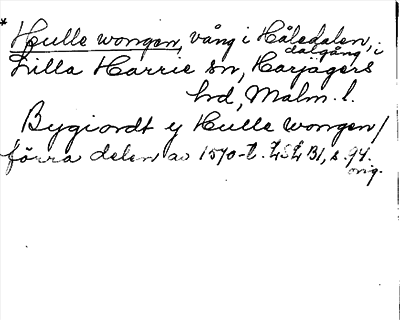 * Hulle wongen, vång i Håledalen, dalgång i
Lilla Harrie sn, Harjagers
hd, Malm. l.
Bygiordt y Hulle wongen /
förra delen av 1570-t. LSLB1, s. 94.
orig.